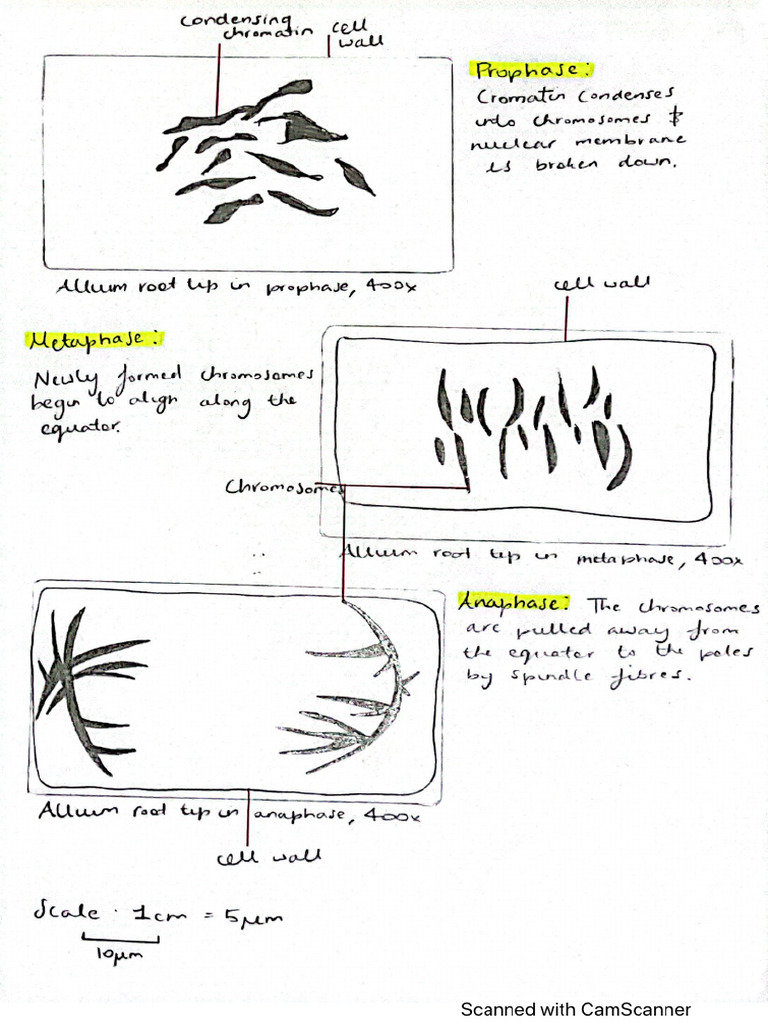 condensing
chromatin
cell
wall
Prophase:
Cromatin condenses
into chromosomes &
nuclear membrane
is broken down.
Allium root tip in prophase, 400x
cell wall
Metaphase:
Newly formed chromosomes
begin to align along the
equator.
Chromosomes
Allium root tip in metaphase, 400x
Anaphase: The chromosomes
are pulled away from
the equator to the poles
by spindle fibres.
Allium root tip in anaphase, 400x
cell wall
Scale · 1cm = 5μm
10μm
Scanned with CamScanner